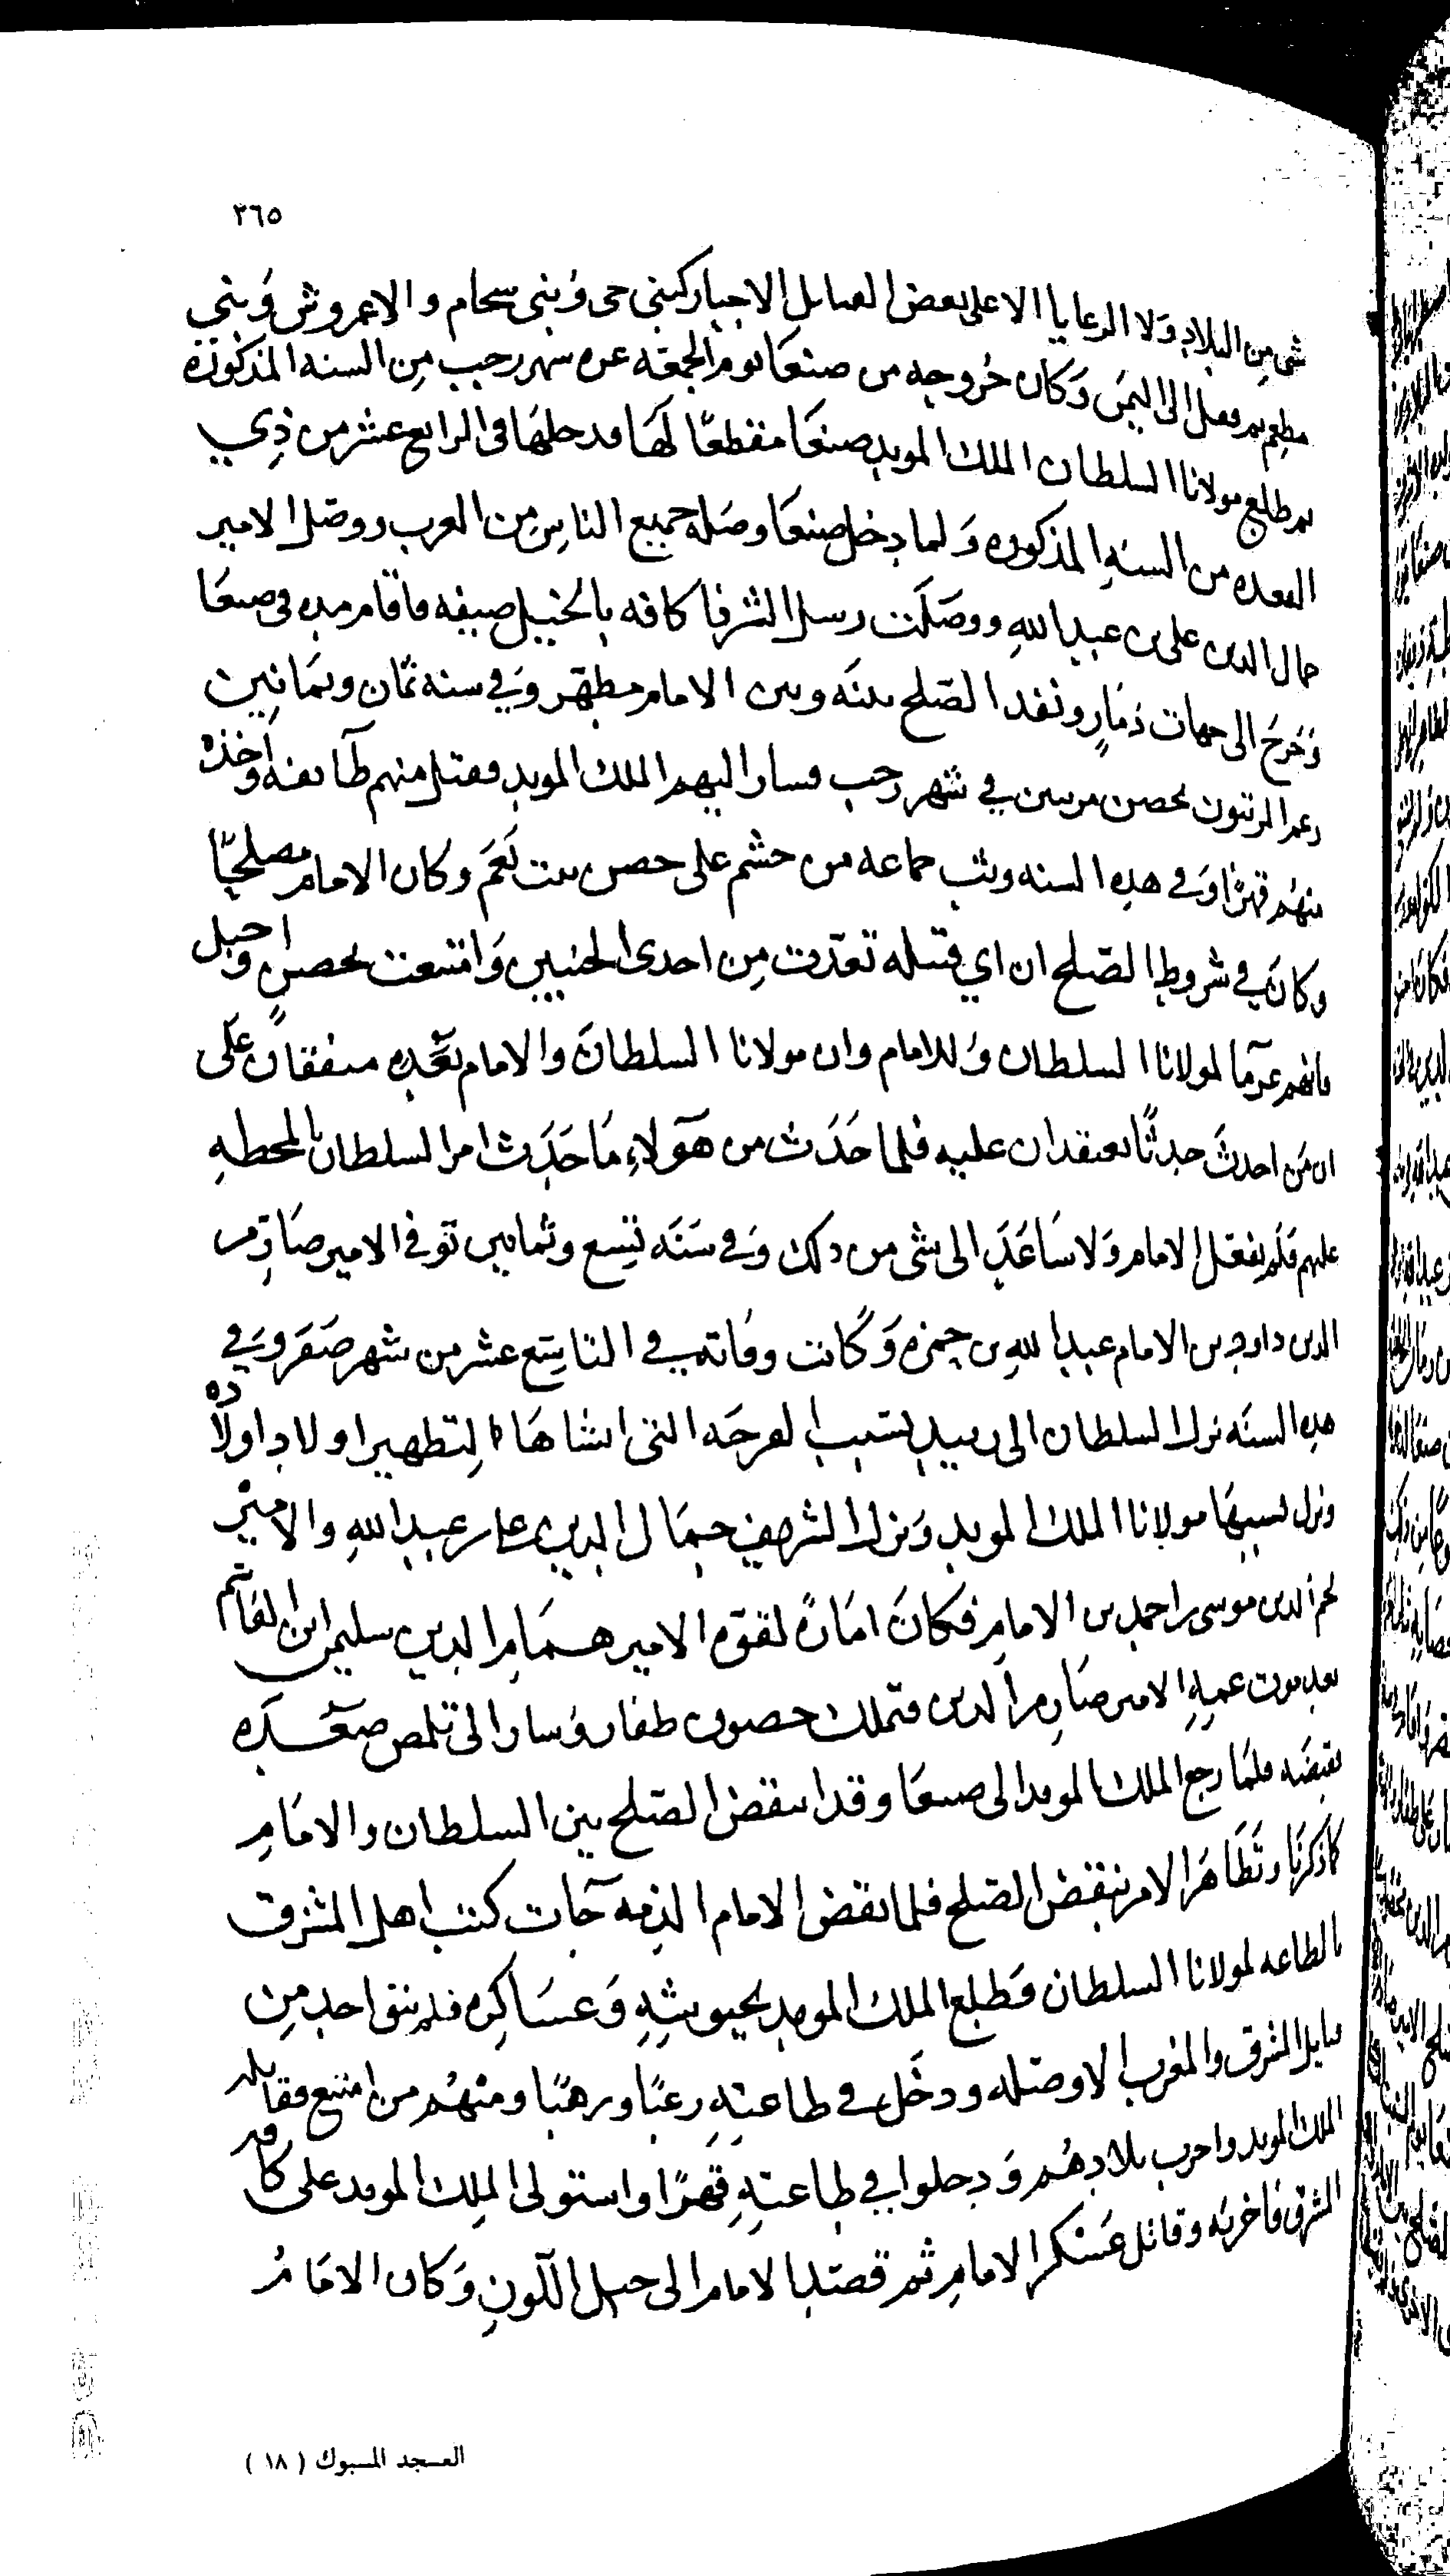 ٢٦٥
شى من البلاد ولا الرعايا الا على بعض القبايل الاجبار كبنى حى وبنى سحام والاعروش وبني
مطعم ثم قفل الى اليمن وكان خروجه من صنعا يوم الجمعه غره شهر رجب من السنه المذكوره
ثم طلع مولانا السلطان الملك المويد صنعا مقطعا لها فدخلها في الرابع عشر من ذي
القعده من السنه المذكوره ولما دخل صنعا وصله جميع الناس من العرب ووصل الامير
جمال الدين على بن عبد الله ووصلت رسل الشرفا كافه بالخيل فاقام مده في صنعا
وخرج الى جهات ذمار ونفد الصلح بينه وبين الامام مطهر وفي سنه ثمان وثمانين
المرتبون بحصن في شهر رجب فسار اليهم الملك المويد فقتل منهم طايفه واخذه
منهم قهرا وفي هذه السنه وثب جماعه من حشم على حصن بيت نعم وكان الامام مصلحا
وكان في شروط الصلح ان اي قبيله تعدت من احدى الجنبين وامتنعت بحصن او جبل
لمولانا السلطان وللامام وان مولانا السلطان والامام متفقان على
ان من احدث حدثا يعتقدان عليه فلما حدث من هولاء ما حدث امر السلطان بالمحطه
عليهم فلم يفعل الامام ولا ساعد الى شى من ذلك وفي سنه تسع وثمانين توفي الامير صارم
الدين داود بن الامام عبد الله بن حمزه وكانت وفاته في التاسع عشر من شهر صفر وفي
هذه السنه نزل السلطان الى زبيد بسبب الفرحه التي انشاها لتطهير اولاد اولاده
ونزل بسببها مولانا الملك المويد ونزل الشريف جمال الدين على بن عبد الله والامير
نجم الدين موسى بن احمد بن الامام فكان امارة لقوم الامير همام الدين سليمن ابن القاسم
بعد موت عميه الامير صارم الدين فتملك حصون ظفار وسار الى تلمص صعده
فقبضه فلما رجع الملك المويد الى صنعا وقد انتقض الصلح بين السلطان والامام
كما ذكرنا وتظاهر الامر بنقض الصلح فلما نقض الامام الذمه جات كتب اهل المشرق
بالطاعه لمولانا السلطان فطلع الملك المويد بجيوشه وعساكره فلم يبق احد من
قبايل المشرق والمغرب الا وصله ودخل في طاعته رغبا ورهبا ومنهم من امتنع فقاتله
الملك المويد واخرب بلادهم ودخلوا في طاعته قهرا واستولى الملك المويد على كافه
المشرق فاخربه وقاتل عسكر الامام ثم قصد الامام الى جبل اللوز وكان الامام
العسجد المسبوك ( ١٨ )